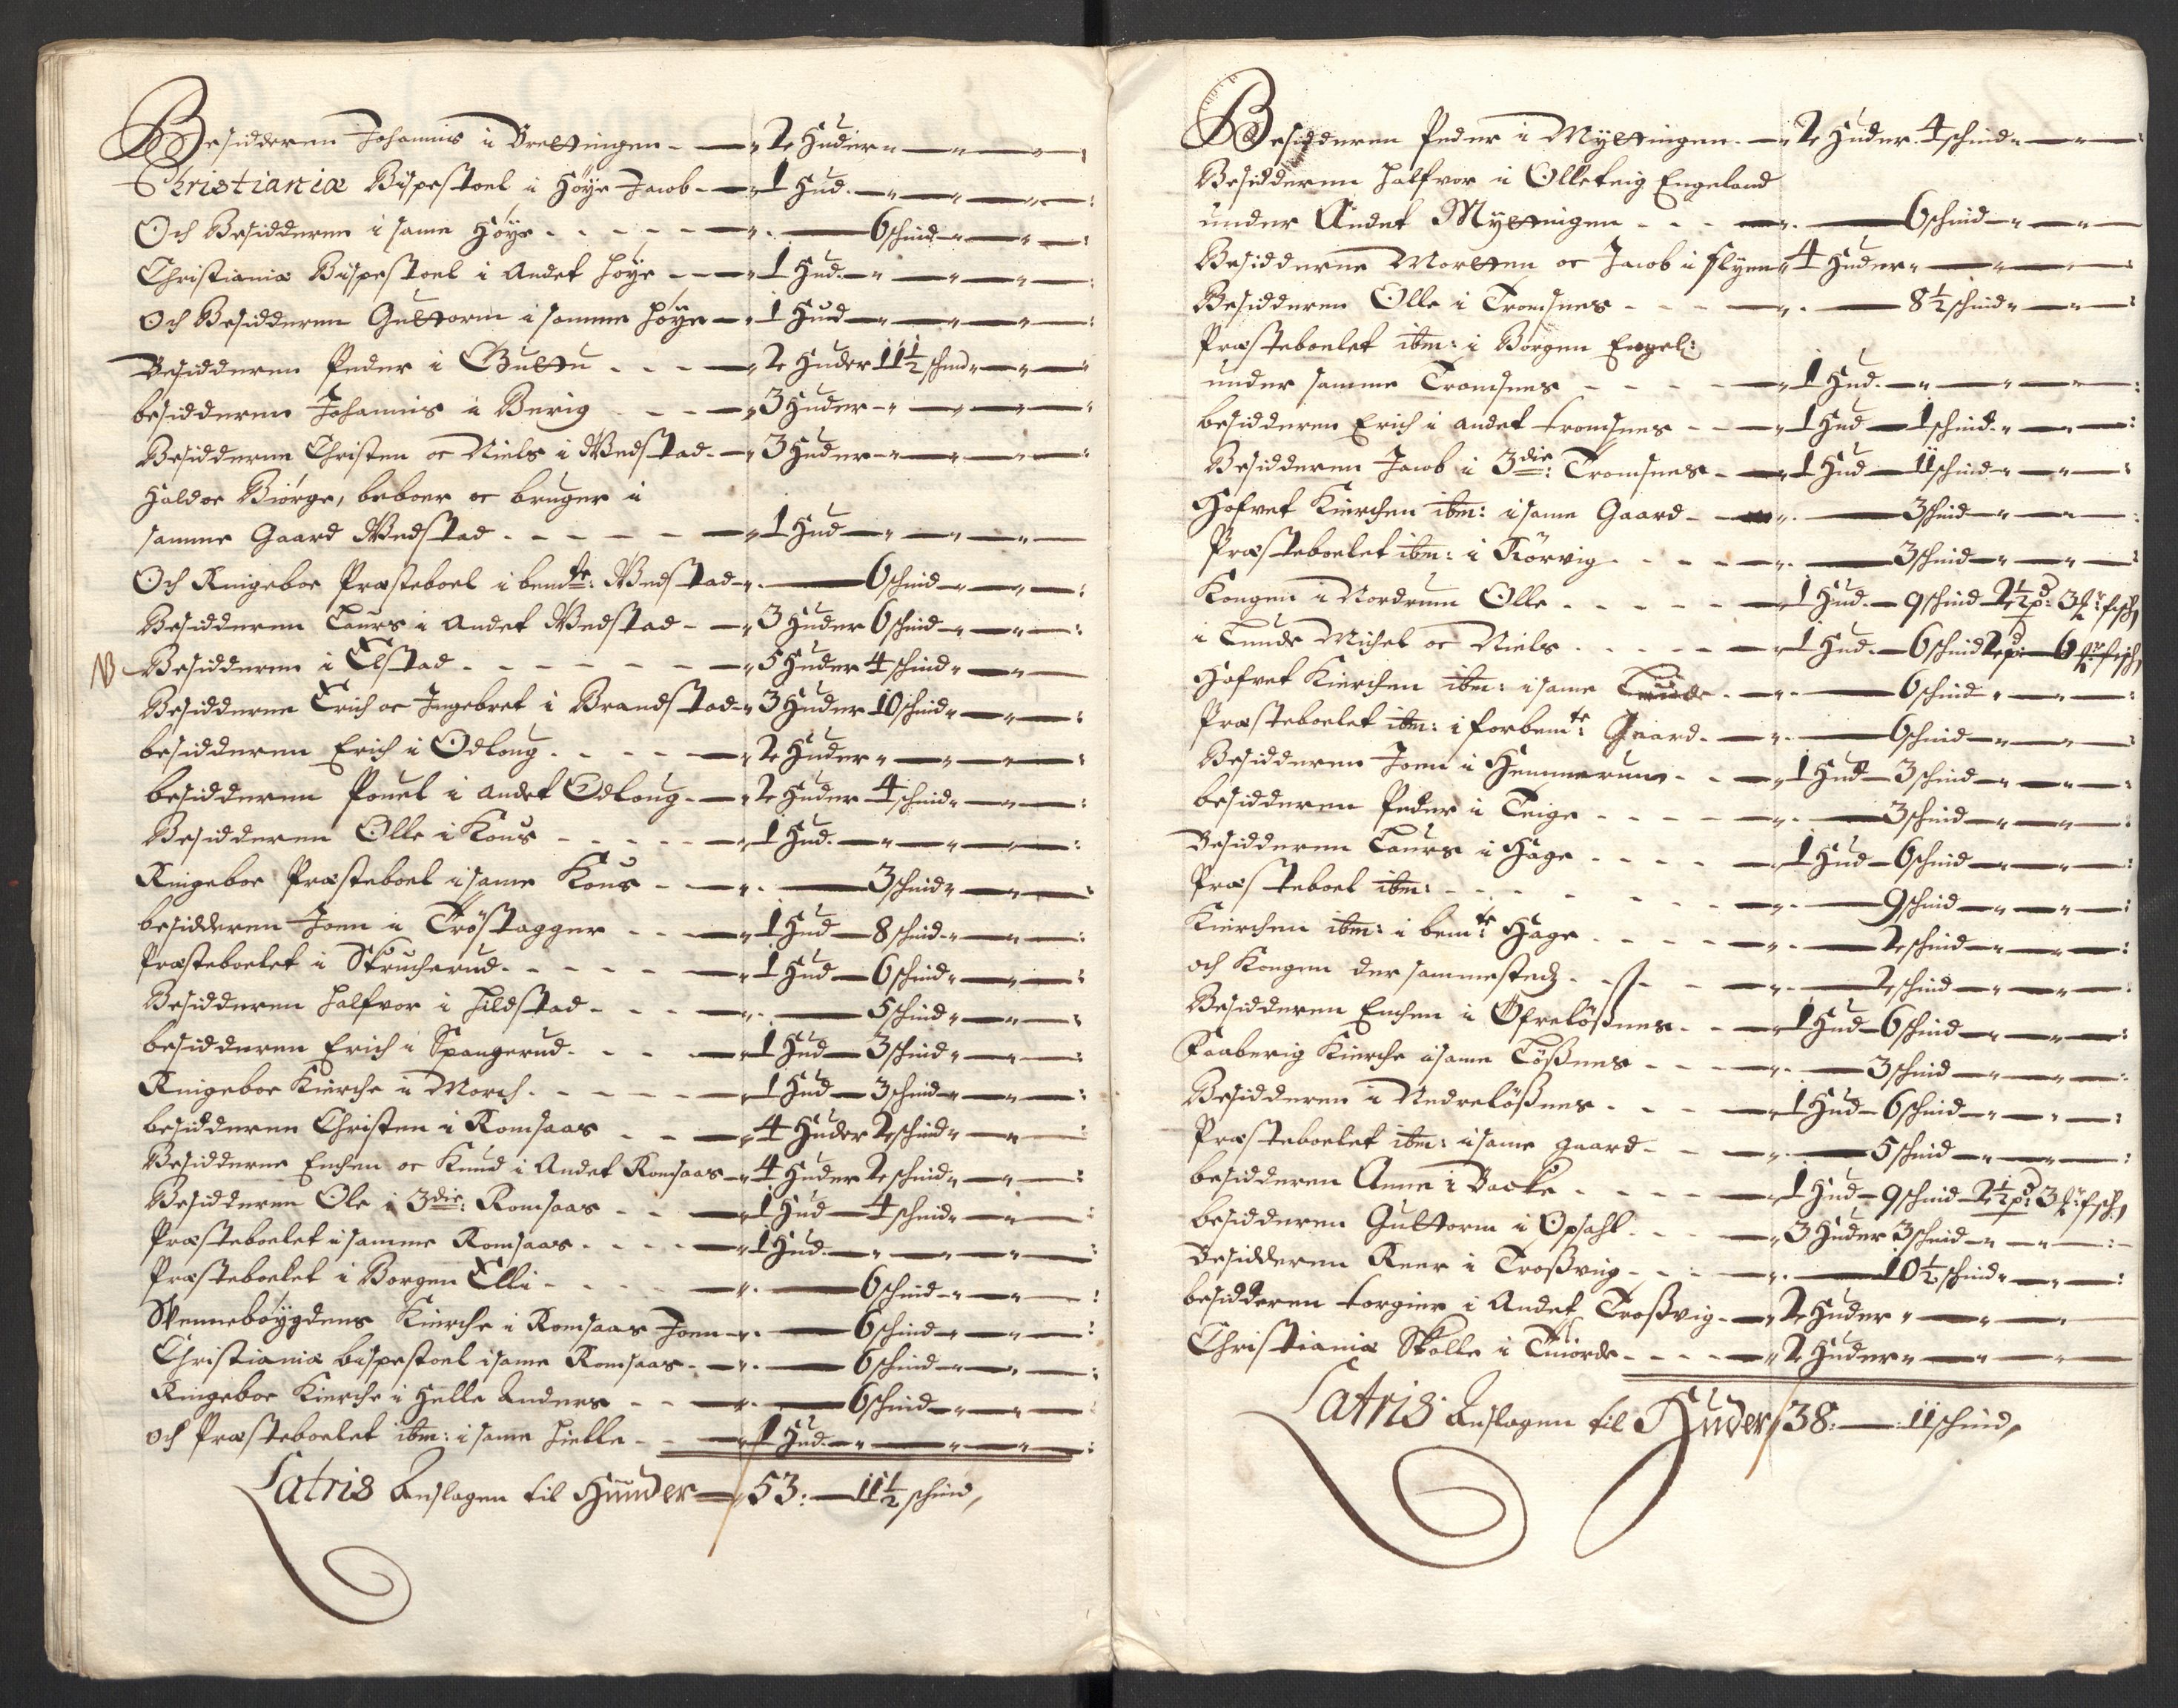 Besidderen Johannis i Brettingen - 2 Huder
Christianiæ Bispestoel i Høye Jacob - 1 Hud
Och Besidderen i same Høye - 6 schind
Christianiæ Bispestoel i Andet høye - 1 Hud
Och Besidderen Guttorm i samme høye - 1 Hud
Besidderen Peder i Gutttu - 2 Huder 11½ schind
besidderen Johannis i Berig - 3 Huder
Besidderne Christen oc Niels i Wedstad - 3 Huder
Haldoe Biørge, beboer oc bruger i
samme Gaard Wedstad - 1 Hud
Och Ringeboe Præsteboel i bemte: Wedstad - 6 schind
Besidderen Laurs i Andet Wedstad - 3 Huder 6 schind
NB Besidderen i Elstad - 5 Huder 4 schind
Besidderne Erich oc Ingebret i Brandstad - 3 Huder 10 schind
besidderen Erich i Odloug - 2 Huder
besidderen Pouel i andet Odloug - 2 Huder 4 schind
Besidderen Olle i Kous - 1 Hud
Ringeboe Præsteboel i same Kous - 3 schind
besidderen Joen i Trøstagger - 1 Hud 8 schind
Præsteboelet i Skrucherud - 1 Hud 6 schind
Besidderen Halfvor i Hildstad - 5 schind
besidderen Erich i Spangerud - 1 Hud 3 schind
Ringeboe Kierche i Morch - 1 Hud 3 schind
besidderen Christen i Romsaas - 4 Huder 2 schind
Besidderne Enchen oc Knud i Andet Romsaas - 4 Huder 2 schind
Besidderen Ole i 3die: Romsaas - 1 Hud 4 schind
Præsteboelet i samme Romsaas - 1 Hud
Præsteboelet i Borgen Elli - 6 schind
Wennebøygdens Kierche i Romsaas Joen - 6 schind
Christianiæ bispestoel i same Romsaas - 6 schind
Ringeboe Kierche i Helle Anders - 6 schind
och Præsteboelet ibm: i same Hielle - 1 Hud
Latris Anslagen til Hunder 53: 11½ schind
Besidderen Peder i Myttingen - 2 Huder 4 schind
Besidderen Halfvor i Olleteig Engeland
under Andet Myttingen - 6 schind
Besidderne Morten oc Jacob i Flyen 4 Huder
Besidderen Olle i Tromsnes - 8½ schind
Præsteboelet ibm: i Borgen Engel:
under samme Tromsnes - 1 Hud
besidderen Erich i andet tromsnes - 1 Hud 1 schind
Besidderen Jacob i 3die: Tromsnes - 1 Hud 11 schind
Hofvet Kierchen ibm: i same Gaard - 3 schind
Præsteboelet ibm: i Kørvig - 3 schind
Kongen i Nordrum Olle - 1 Hud 9 schind 2½ pd: 3 fisch
i Tunde Michel oc Niels - 1 Hud 6 schind 2 pd: 6 fisch
Hofvet Kierchen ibm: i same Tunde - 6 schind
Præsteboelet ibm: i forbemte: Gaard - 6 schind
Besidderen Joen i Hemmerum - 1 Hud 3 schind
besidderen Peder i Teige - 3 schind
Besidderen Laurs i Hage - 1 Hud 6 schind
Præsteboel ibm: - 9 schind
Kierchen ibm: i bemte: Hage - 2 schind
och Kongen der sammesteds - 2 schind
Besidderen Enchen i Øfreløsnes - 1 Hud 6 schind
Faaberig Kierche i same Løsnes - 3 schind
Besidderen i Nedreløsnes - 1 Hud 6 schind
Præsteboelet ibm: i same gaard - 5 schind
besidderen Anne i Backe - 1 Hud 9 schind 2½ pd: 3 fisch
besidderen Guttorm i Opsahl - 3 Huder 3 schind
Besidderen Reer i Trosvig - 10½ schind
besidderen torgier i Andet Trosvig - 2 Huder
Christianiæ Skolle i Tiorde - 2 Huder
Latris Anslagen til Huder 38: 11 schind